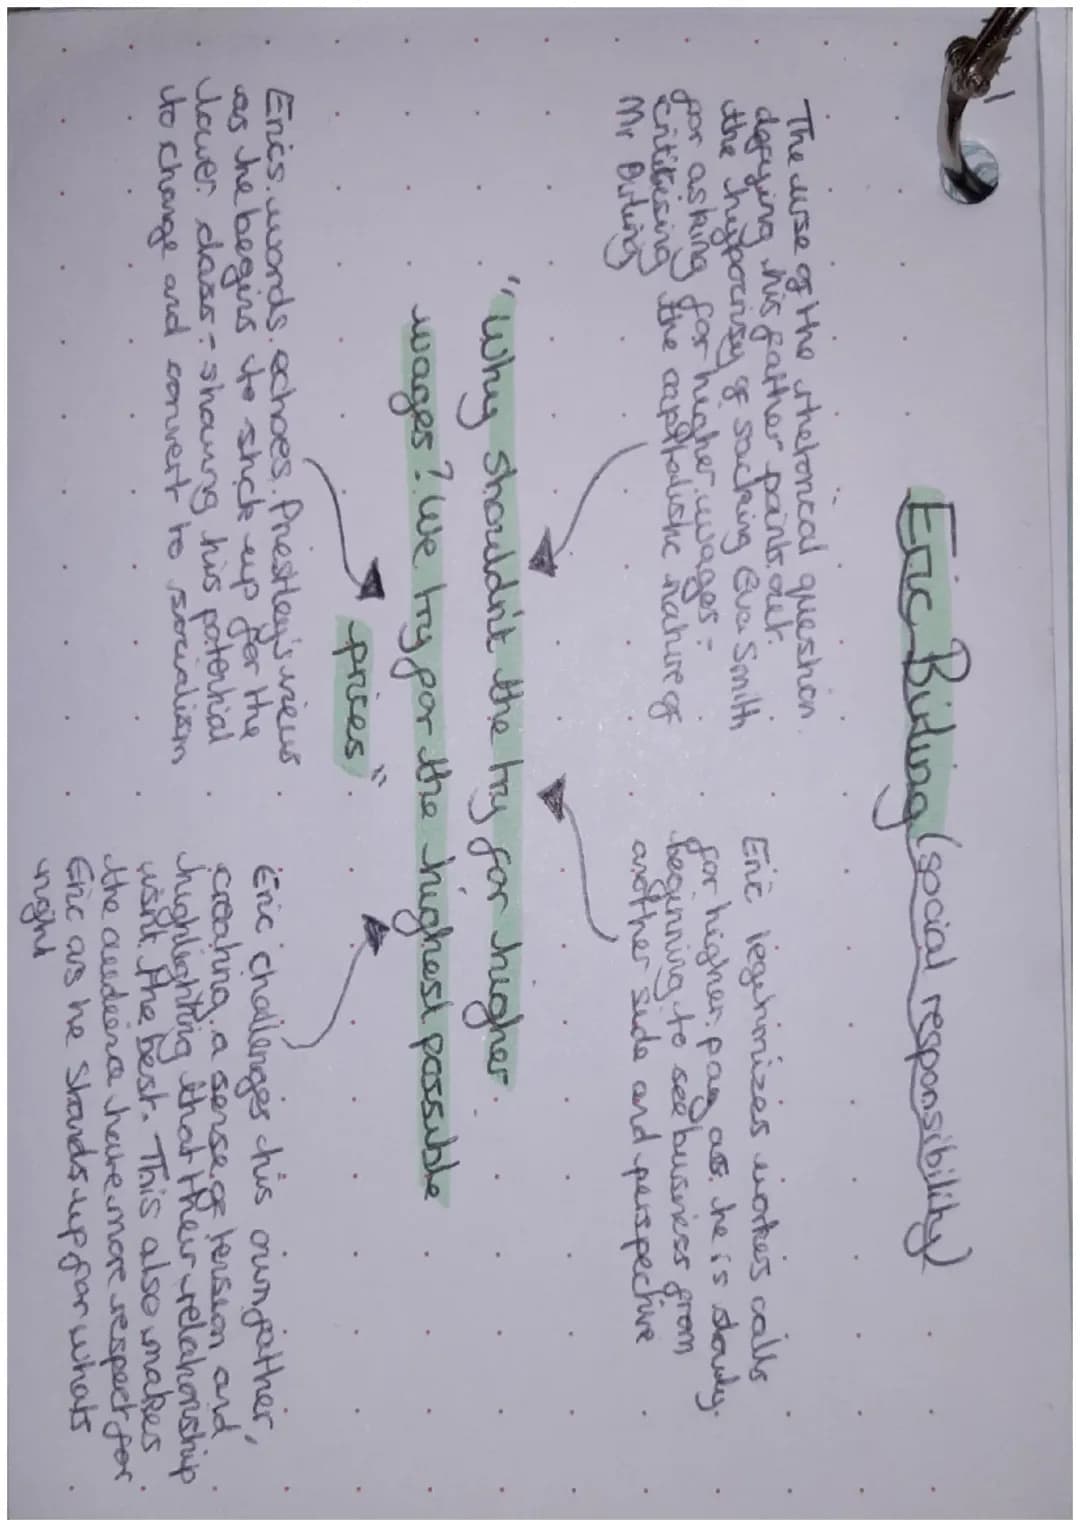 Eric Birling (social responsibility)
The use of the rhetorical question
defying his father points out
the hypocrisy of sacking Eva Smith
for asking for higher wages -
critisising the capitalistic nature of
Mr Birling
Eric legitimizes workes calls
for higher pay as he is slowly
beginning to see business from
another side and perspective
"Why shouldn't the try for higher
wages? We try for the highest possible
prices"
Erics words echoes Priestley's views
as he begins to stick up for the
lower class - showing his potential
to change and convert to socialism
Eric challenges his own father,
creating a sense of tension and
highlighting that their relationship
isnt the best. This also makes
the audience have more respect for
Eric as he stands up for whats
right